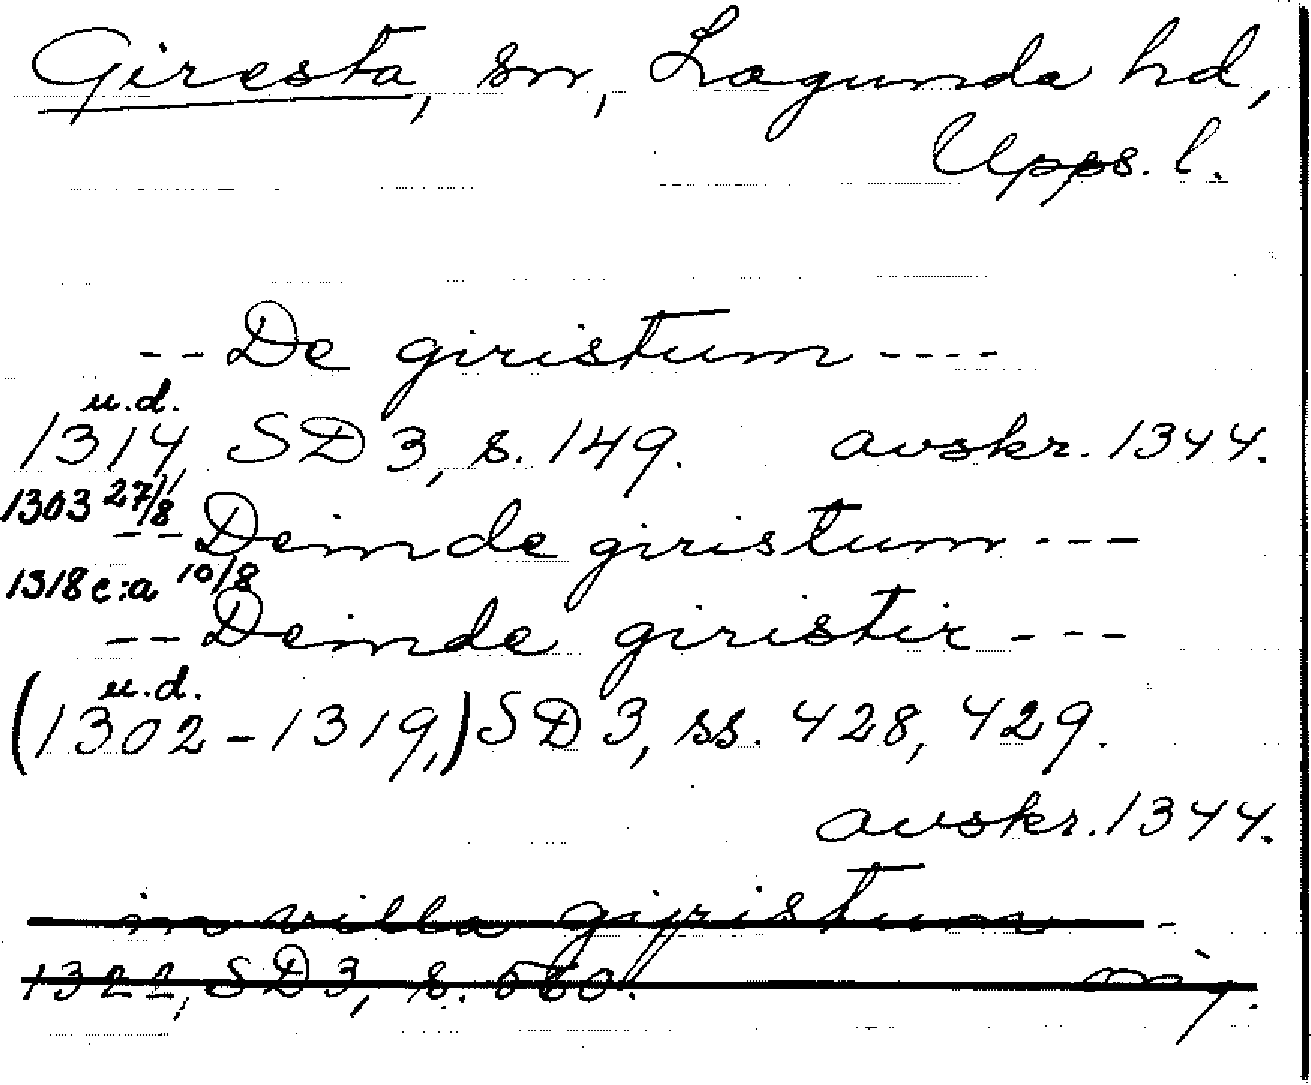 Giresta, sn, Lagunda hd,
Upps. l.
-- De giristum ----
u.d.
1314, SD 3, s. 149. avskr. 1344.
1303 27/8
-- Deinde giristum ---
1318 c:a 10/8
-- Deinde giristir ---
u.d.
(1302-1319,) SD 3, ss. 428, 429.
avskr. 1344.
in villa gijristum -
1322, SD 3, s. 560.